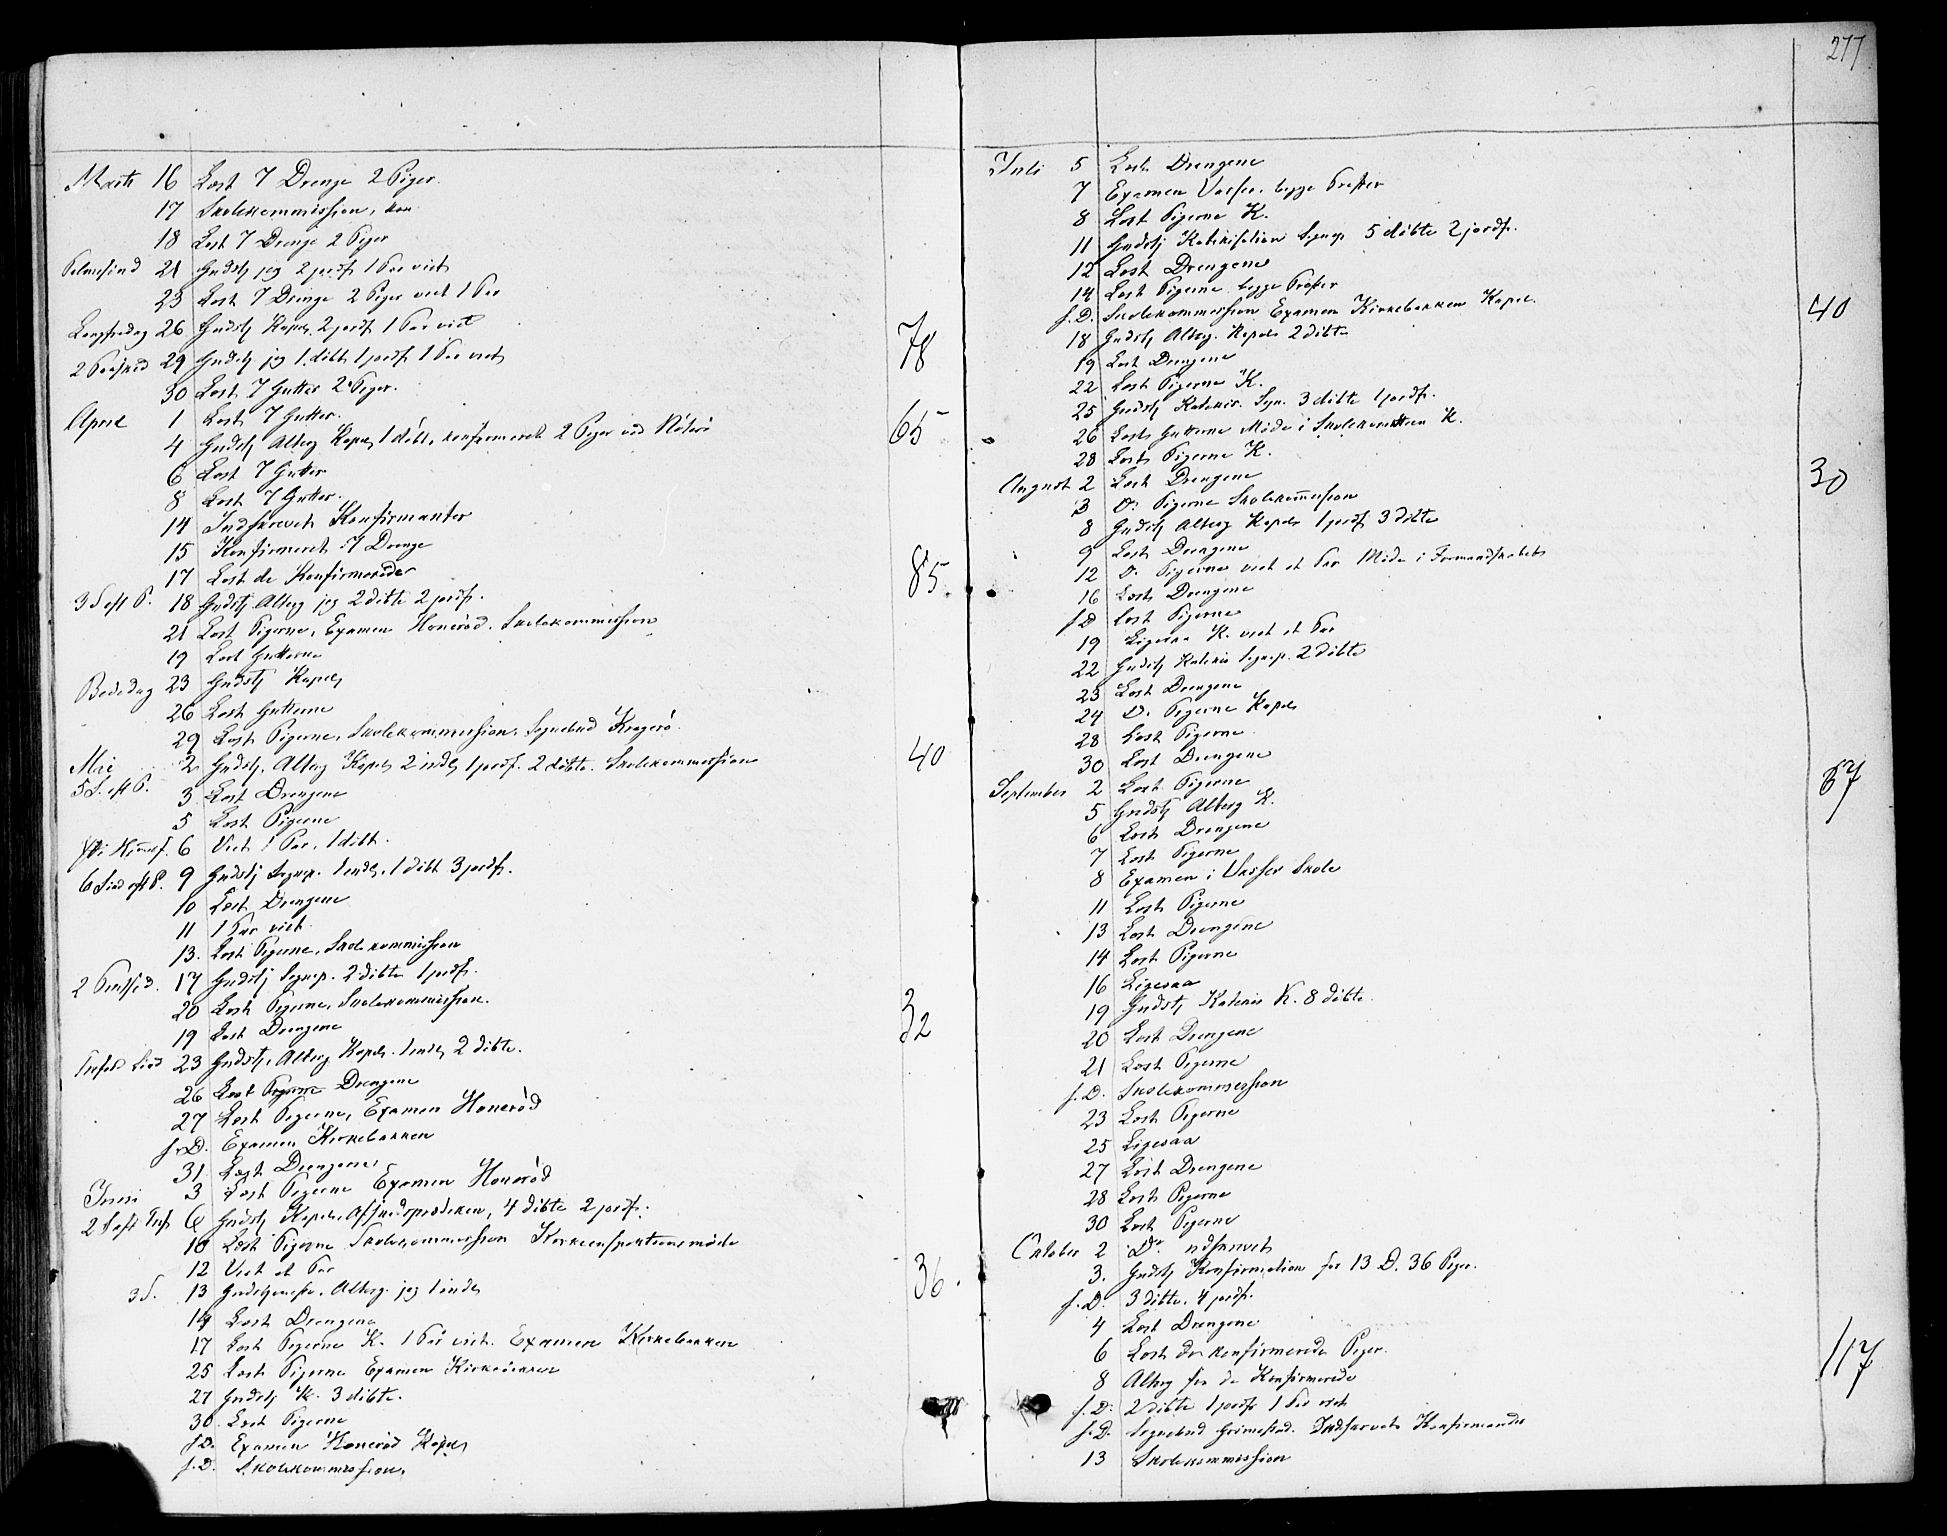 277
Marts 16 Læst 7 Drenge 2 Piger.
17 Skolekommission,
18 Læst 7 Drenge 2 Piger
Palmesønd 21 Gudstj jeg 2 jordf 1 Par viet
23 Læst 7 Drenge 2 Piger viet 1 Par
Langfredag 26 Gudstj Kapel. 2 jordf 1 Par viet
78
2 Paaskед 29 Gudstj jeg 1 døbt 1 jordf 1 Par viet
30 Læst 7 Gutter 2 Piger.
April 1 Læst 7 Gutter.
4 Gudstj Alterg Kapel, 1 døbt, konfirmeret 2 Piger ved Nøterø
65
6 Læst 7 Gutter
8 Læst 7 Gutter.
14 Indskrevet Konfirmanter
15 Konfirmeret 7 Drenge
17 Læst de Konfirmerede
85.
3 S eft P. 18 Gudstj Alterg jeg 2 døbte 2 jordf.
21 Læst Pigerne, Examen Honerød. Skolekommission
19 Læst Gutterne
Bededag 23 Gudstj Kapel
26 Læst Gutterne
29 Læst Pigerne, Skolekommission, Sognebud Kragerø.
Mai 2 Gudstj. Alterg Kapel 2 indl 1 jordf. 2 døbte. Skolekommission
40
5 S. eft P. 3 Læst Drengene
5 Læst Pigerne
Kri Himmf. 6 Viet 1 Par, 1 døbt.
6 Sønd eft P. 9 Gudstj Sognep. 1 indl, 1 døbt 3 jordf.
10 Læst Drengene
11 1 Par viet
13. Læst Pigerne, Skolekommission
2 Pintsed. 17 Gudstj Sognep. 2 døbte 1 jordf.
20 Læst Pigerne, Skolekommission.
32
19 Læst Drengene
Trefol Sønd 23 Gudstj, Alterg Kapel. 1 indl 2 døbte.
26 Læst Pigerne Drengene
27 Læst Pigerne, Examen Honerød
s. D. Examen Kirkebakken
31 Læst Drengene
Juni 3 Læst Pigerne Examen Honerød
2 S eft Tref 6 Gudstj Kapel. Afskedsprædiken, 4 døbte 2 jordf.
10 Læst Pigerne Skolekommission
12 Viet et Par
36.
3 S. 13 Gudstjeneste. Alterg. jeg 1 indl
14 Læst Drengene
17 Læst Pigerne K. 1 Par viet. Examen Kirkebakken
25 Læst Pigerne Examen Kirkebakken
27 Gudstj K. 3 døbte.
30. Læst Pigerne
s. D. Examen Honerød Kapel
s. D. Skolekommission.
Juli 5 Læst Drengene
7 Examen Vasser. begge Præster
8 Læst Pigerne K.
11 Gudstj Katekisation Sognep 5 døbte 2 jordf.
12 Læst Drengene
14 Læst Pigerne begge Præster
s. D. Skolekommission Examen Kirkebakken Kapel.
40
18 Gudstj Alterg. Kapel 2 døbte
19 Læst Drengene
22 Læst Pigerne K.
25 Gudstj Katekis. Sgn. 3 døbte 1 jordf.
26 Læst Gutterne Møde i Skolekomiteen K.
28 Læst Pigerne K.
August 2 Læst Drengene
30
3 Do Pigerne Skolekommission
8 Gudstj Alterg Kapel 1 jordf 3 døbte
9 Læst Drengene
12 Do Pigerne viet et Par Møde i Formandskabet
16 Læst Drengene
s. D Læst Pigerne
19 Ligesaa K. viet et Par
22 Gudstj Katekis Sognep. 2 døbte
23 Læst Drengene
24 Do Pigerne Kapel
28 Læst Pigerne
30 Læst Drengene
September 2 Læst Pigerne
67
5 Gudstj Alterg K.
6 Læst Drengene
7 Læst Pigerne
8 Examen i Vasser Skole
11 Læst Pigerne
13 Læst Drengene
14 Læst Pigerne
16 Ligesaa
19 Gudstj Katekis K. 8 døbte.
20 Læst Drengene
21 Læst Pigerne
s. D. Skolekommission
23 Læst Pigerne
25 Ligesaa
27 Læst Drengene
28 Læst Pigerne
30 Læst Pigerne
Oktober 2 Do. udskrevet
3. Gudstj Konfirmation for 13 D. 36 Piger.
s. D. 3 døbte. 4 jordf.
4 Læst Drengene
6 Læst de konfirmerede Piger.
117
8 Alterg for de Konfirmerede
s. D. 2 døbte 1 jordf 1 Par viet
s. D. Sognebud Grimestad. Indskrevet Konfirmander
13 Skolekommission